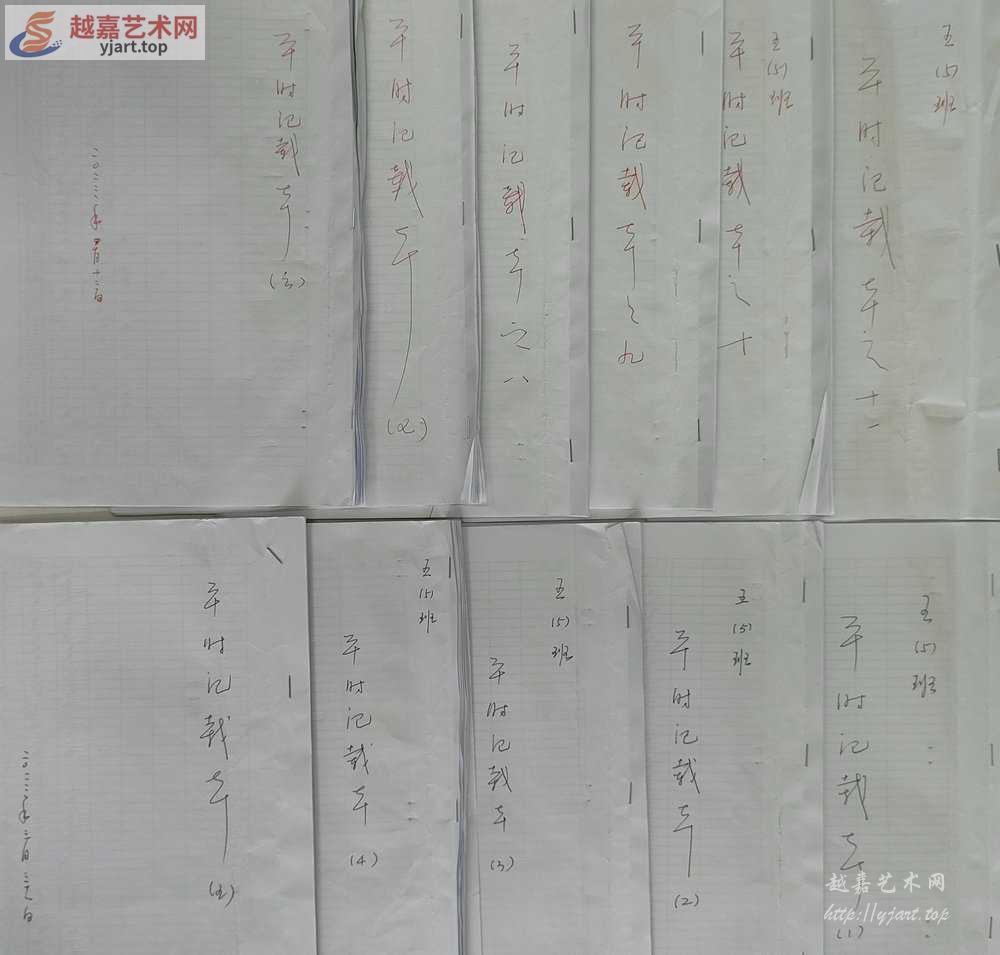 越嘉艺术网
yjart.top
平时记载本(六)
二〇二二年四月十二日
平时记载本(七)
平时记载本之八
平时记载本之九
五(5)班
平时记载本之十
五(5)班
平时记载本之十一
平时记载本(五)
五(5)班
平时记载本(4)
五(5)班
平时记载本(3)
五(5)班
平时记载本(2)
五(5)班
平时记载本(1)
越嘉艺术网
http://yjart.top